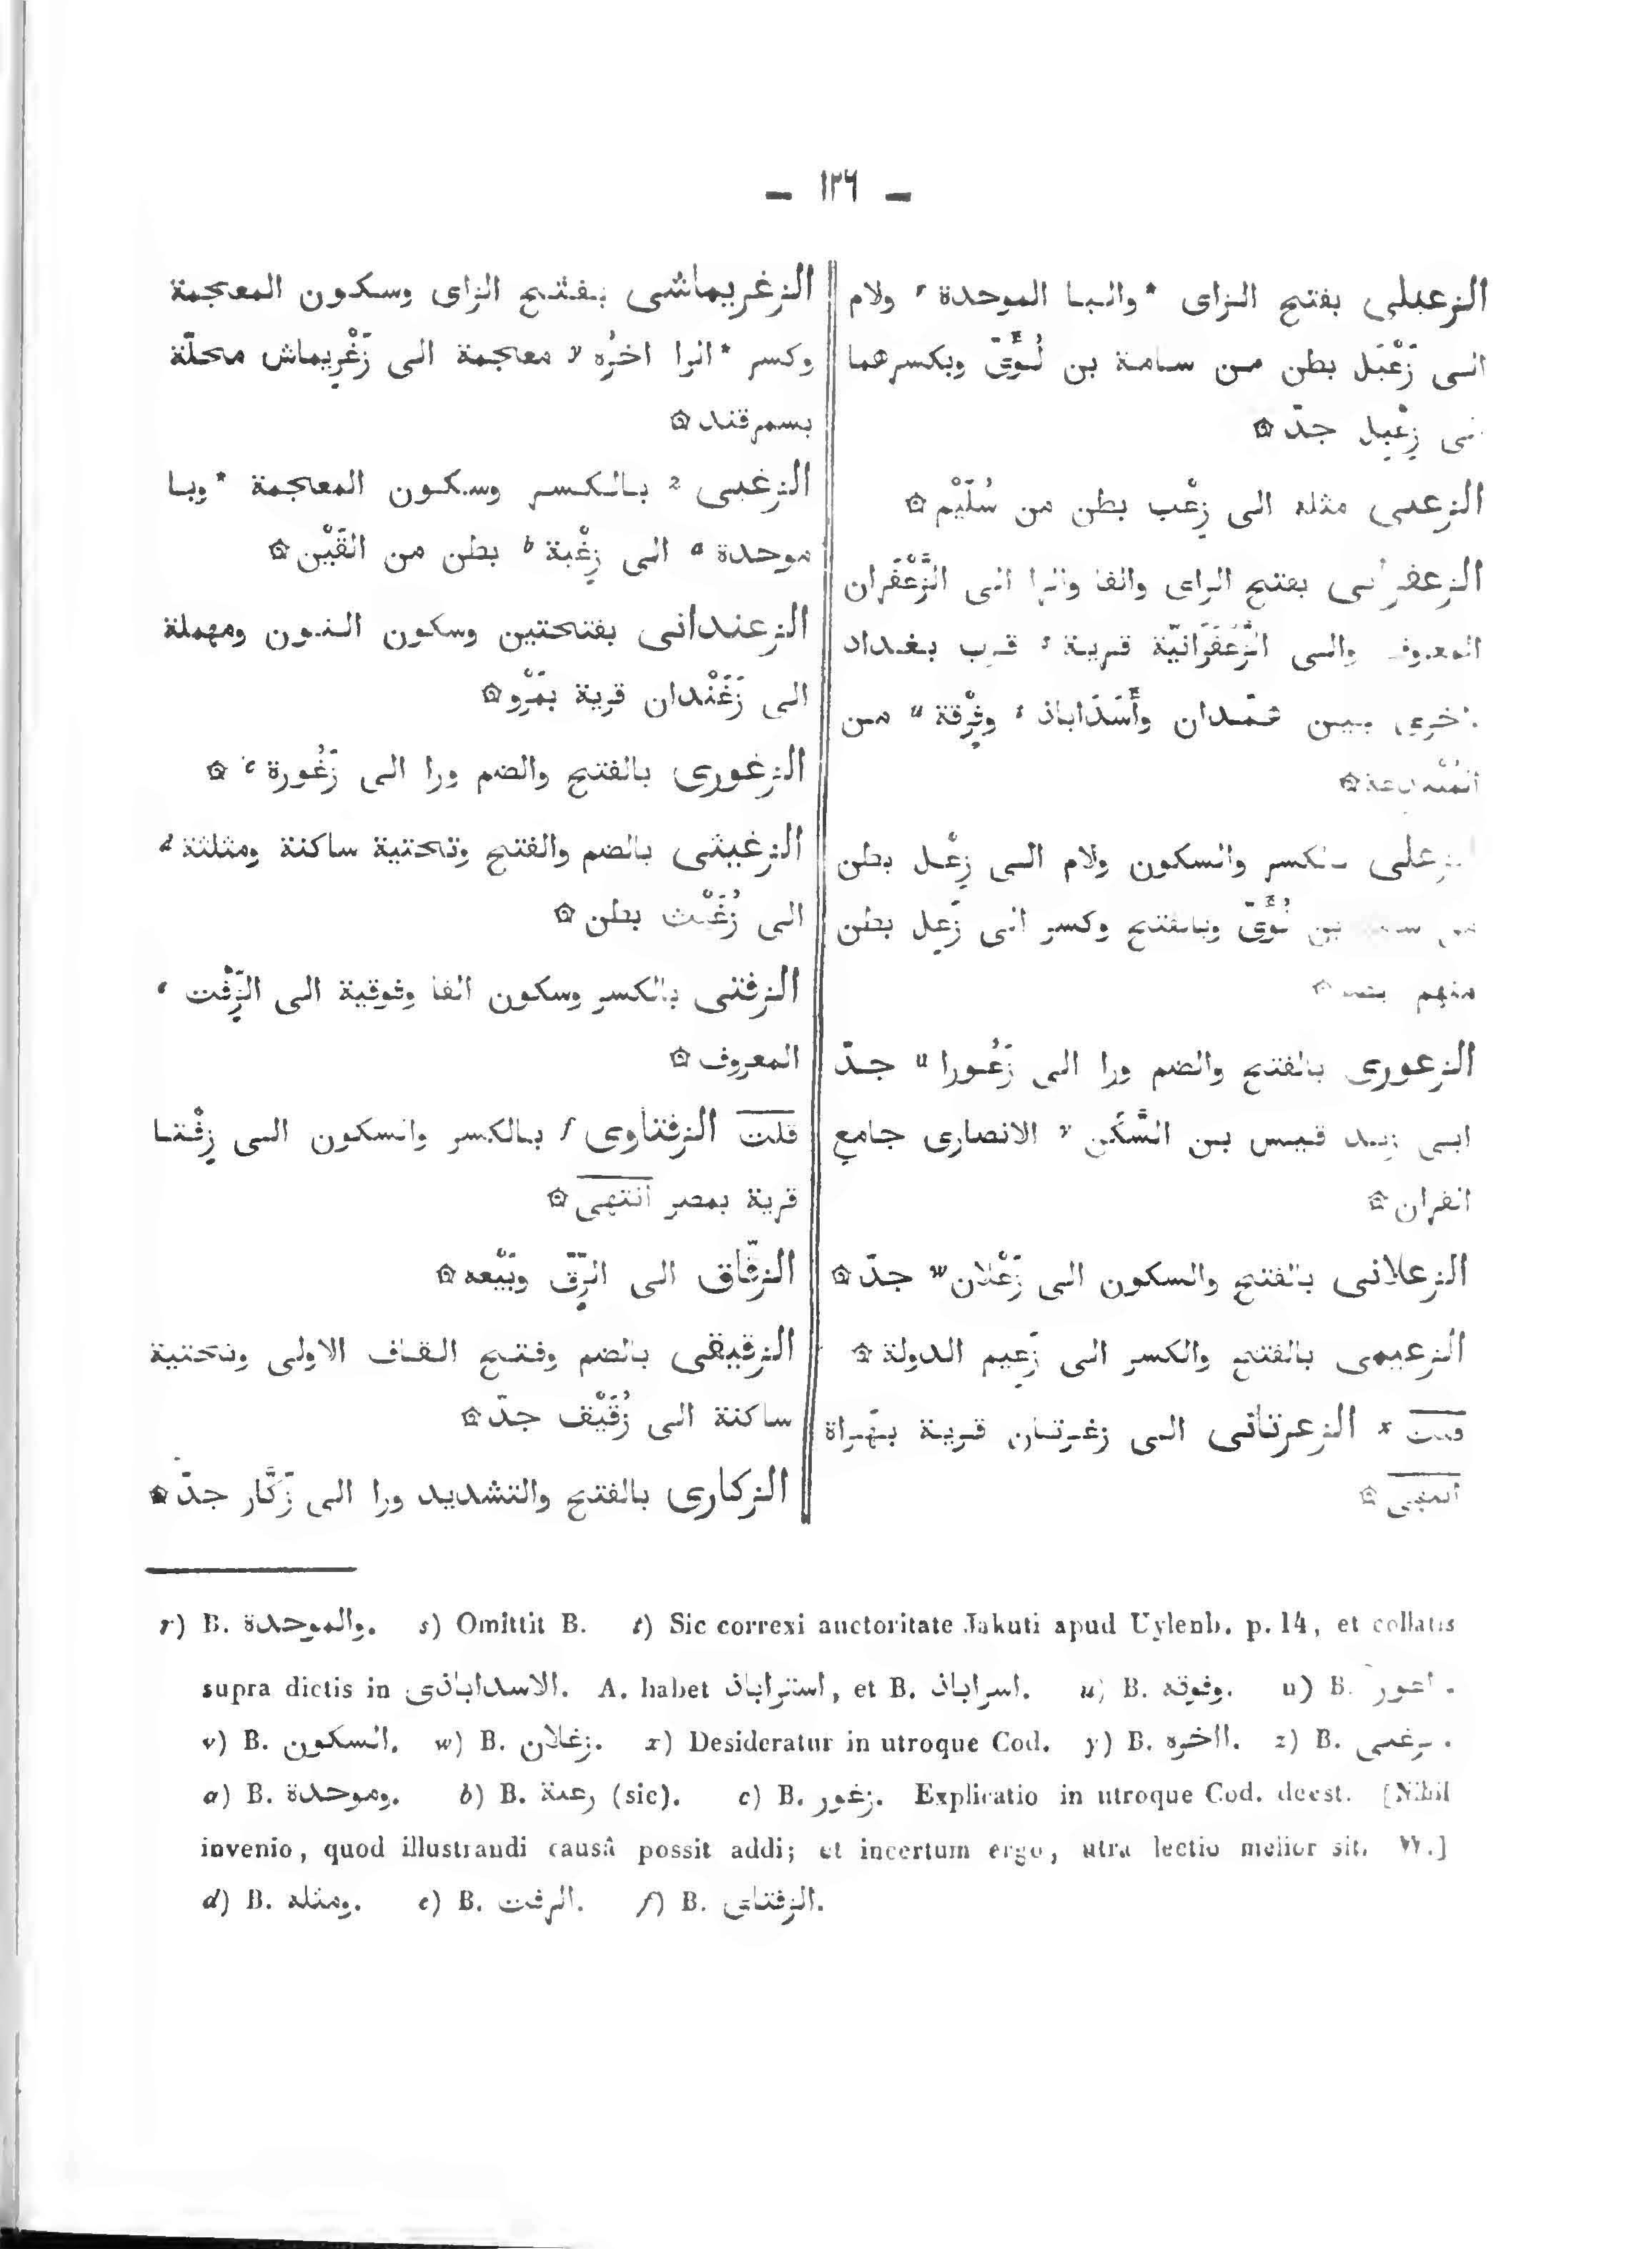 — ١٢٦ —
الزعبلى بفتح الزاى *والبا الموحدة r ولام
الى زَعْبَل بطن من سامة بن لُوَّىّ وبكسرهما
زِعْبِل جدّ ۞
الزعبى مثله الى زِعْب بطن من سُلَيْم ۞
الزعفرانى بفتح الزاى والفا والرا الى الزَّعْفَران
المعروف والى الزَّعْفَرَانيّة قرية s قرب بغداد
اخرى بين هَمَدان وأَسَدَاباذ t وفِرْقة u من
الزعلى بالكسر والسكون ولام الى زِعْل بطن
من سامة بن لُوَّىّ وبالفتح وكسر الى زَعِل بطن
منهم ۞
الزعورى بالفتح والضم ورا الى زَعُورا u جدّ
ابى زيد قيس بن السَّكَن v الانصارى جامع
القران ۞
الزعلانى بالفتح والسكون الى زَعْلان w جدّ ۞
الزعيمى بالفتح والكسر الى زَعِيم الدولة ۞
قلت x الزغرتانى الى زغرتان قرية بهَراة
انتهى ۞
الزغريماشى بفتح الزاى وسكون المعجمة
وكسر *الرا اخرُه y معجمة الى زَغْرِيماش محلّة
بسمرقند ۞
الزغبى z بالكسر وسكون المعجمة *وبا
موحدة a الى زِغْبة b بطن من القَيْن ۞
الزغندانى بفتحتين وسكون النون ومهملة
الى زَغَنْدان قرية بمَرْو ۞
الزغورى بالفتح والضم ورا الى زَغُورة c ۞
الزغيثى بالضم والفتح وتحتية ساكنة ومثلثة d
الى زُغَيْث بطن ۞
الزفتى بالكسر وسكون الفا وفوقية الى الزِّفْت e
المعروف ۞
قلت الزفتاوى f بالكسر والسكون الى زِفْتا
قرية بمصر انتهى ۞
الزقّاق الى الزِّقّ وبَيْعه ۞
الزقيقى بالضم وفتح القاف الاولى وتحتية
ساكنة الى زُقَيْق جدّ ۞
الزكارى بالفتح والتشديد ورا الى زَكَّار جدّ ۞
r) B. والموحدة. s) Omittit B. t) Sic correxi auctoritate Jakuti apud Uylenb. p. 14, et collatis
supra dictis in الاسداباذى. A. habet استراباذ, et B. اسراباذ. u) B. وفوقه. u) B.
v) B. السكون. w) B. زغلان. x) Desideratur in utroque Cod. y) B. الخره. z) B.
a) B. وموحدة. b) B. رعبة (sic). c) B. زغور. Explicatio in utroque Cod. deest. [Nihil
invenio, quod illustrandi causâ possit addi; et incertum ergo, utra lectio melior sit. W.]
d) B. ومثله. e) B. الرفت. f) B. الزفتاى.